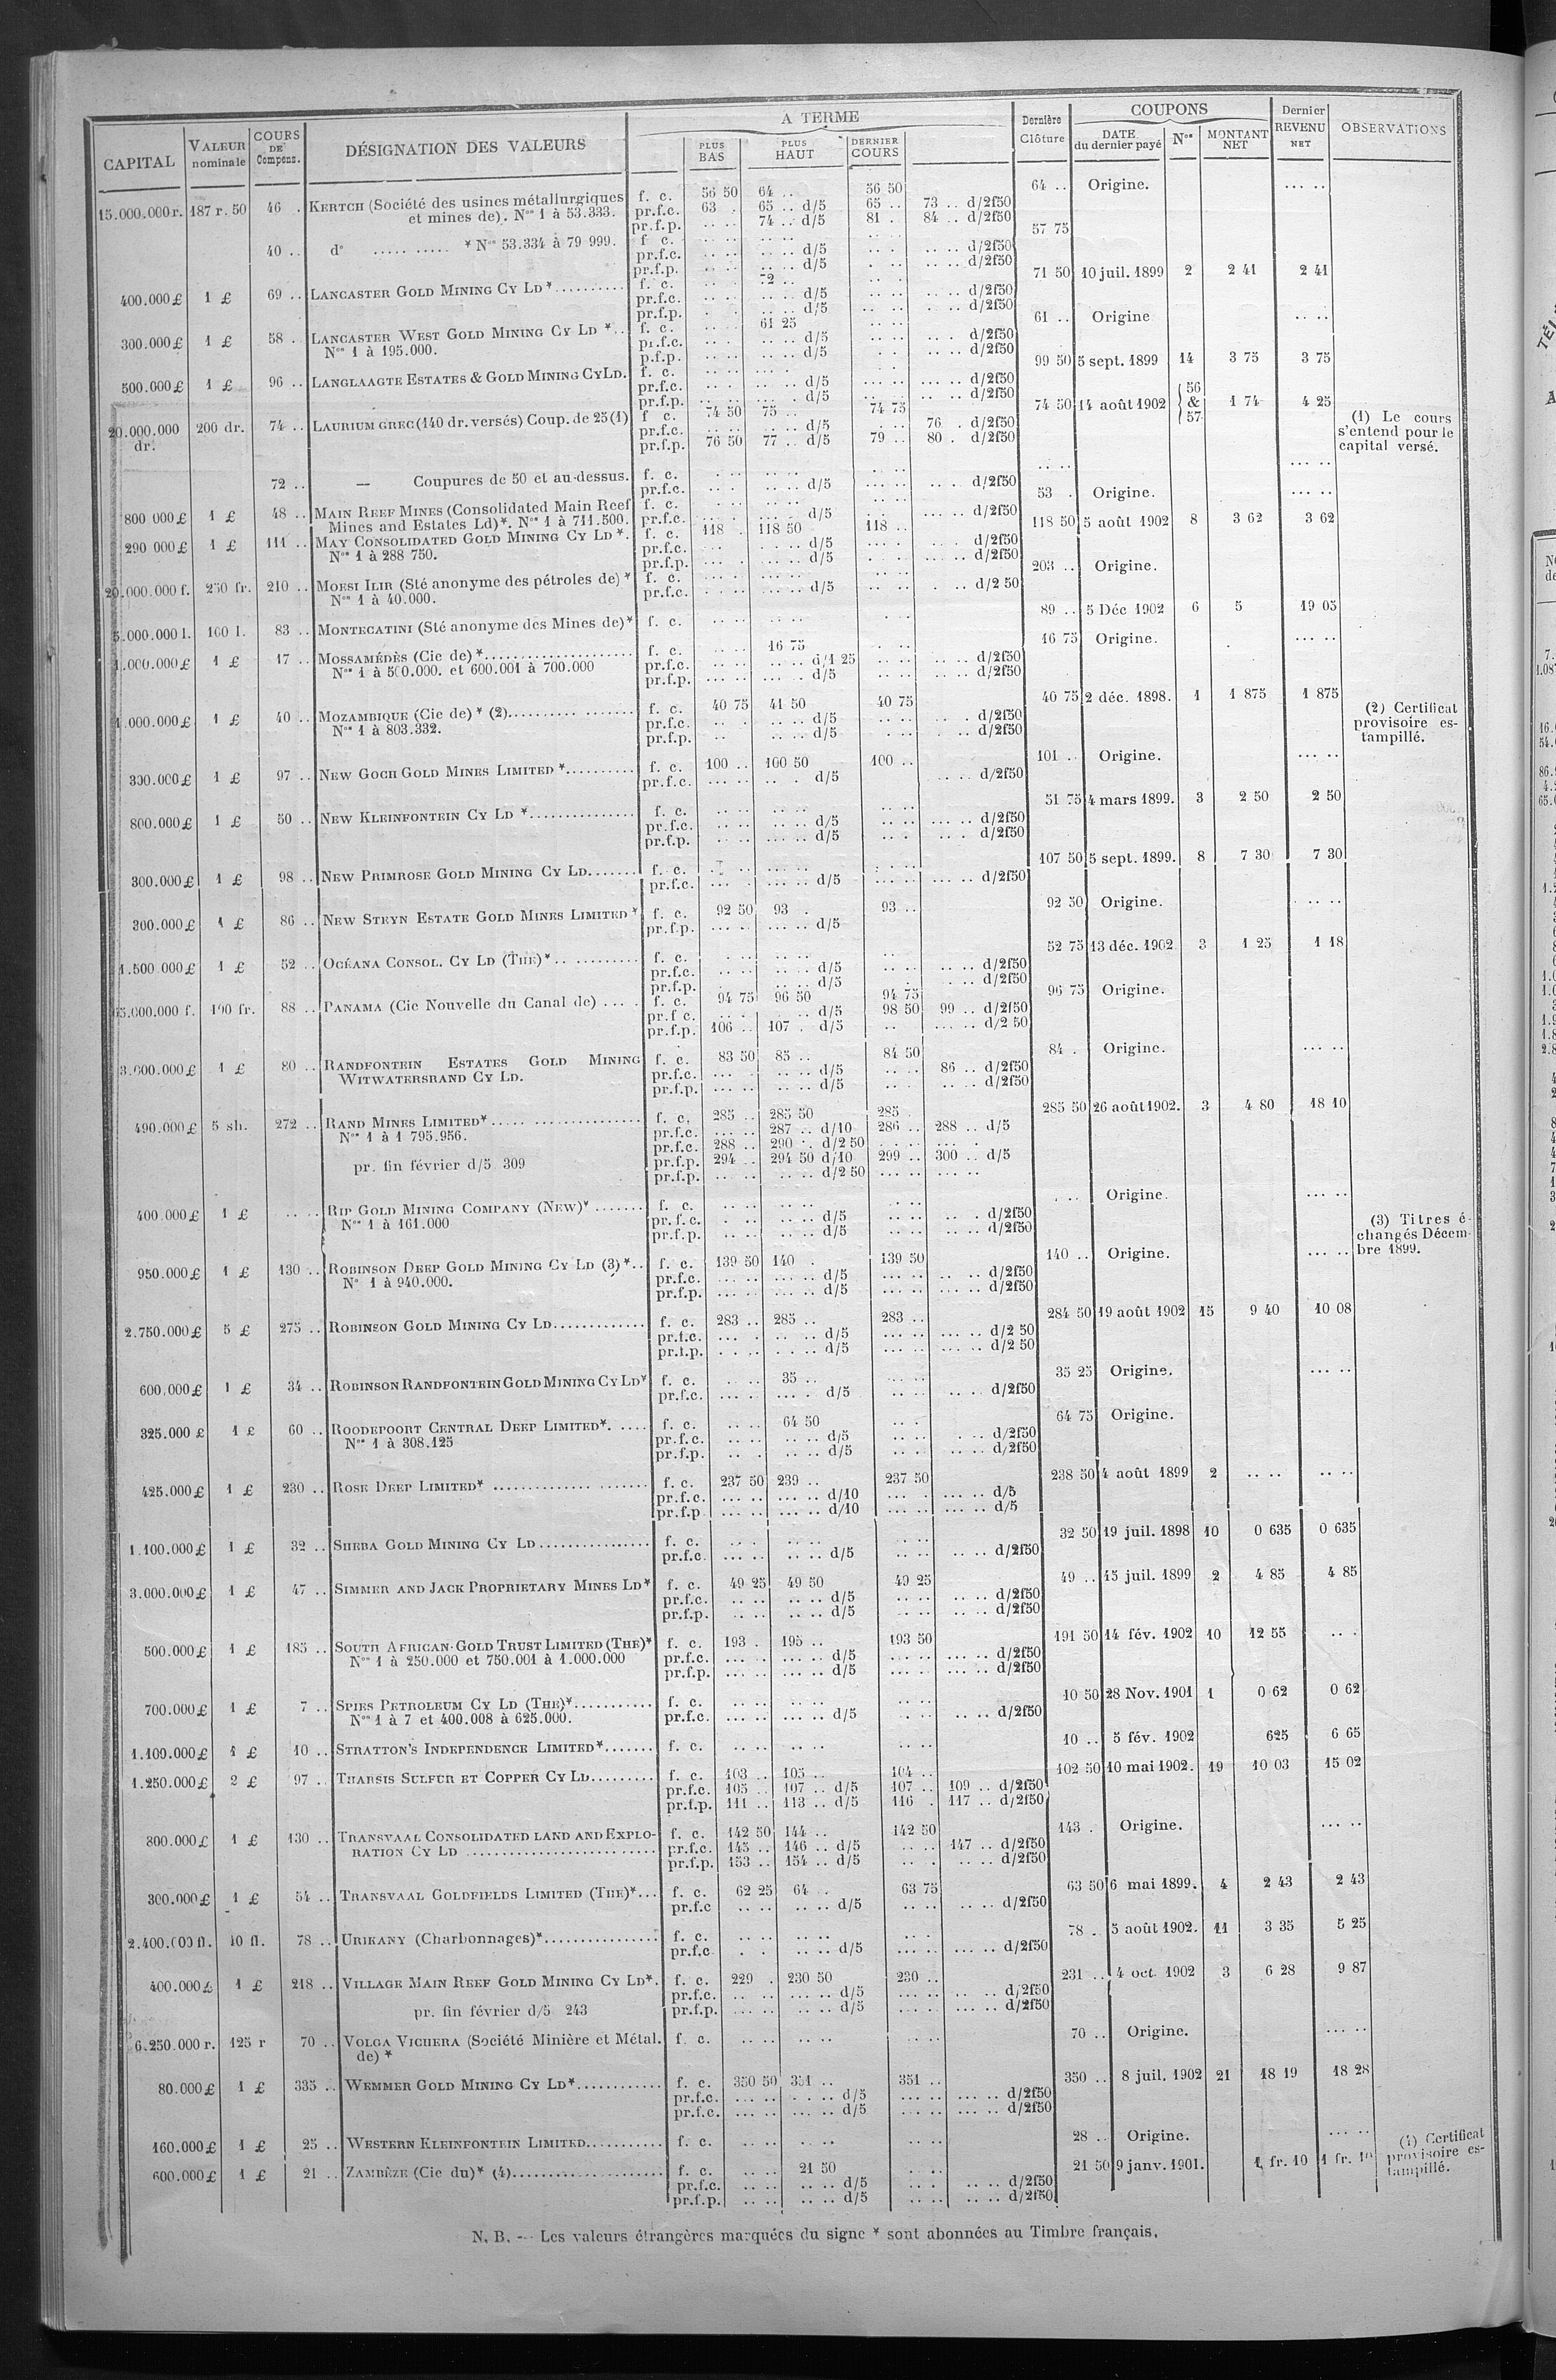 CAPITAL VALEUR nominale COURS DE Compens. DÉSIGNATION DES VALEURS A TERME PLUS BAS PLUS HAUT DERNIER COURS Dernière Clôture COUPONS DATE du dernier payé Nos MONTANT NET Dernier REVENU NET OBSERVATIONS
15.000.000 r. 187 r. 50 46 . KERTCH (Société des usines métallurgiques f. c. 56 50 64 .. 56 50 64 .. Origine. ... ..
et mines de). Nos 1 à 53.333. pr.f.c. 63 . 65 .. d/5 65 .. 73 .. d/2f50
pr.f.p. .. .. 74 .. d/5 81 . 84 .. d/2f50
40 .. do ..... ..... * Nos 53.334 à 79 999. f. c. 57 75
pr.f.c. d/5 d/2f50
pr.f.p. d/5 d/2f50
400.000 £ 1 £ 69 .. LANCASTER GOLD MINING CY LD * f. c. 72 .. 71 50 10 juil. 1899 2 2 41 2 41
pr.f.c. d/5 d/2f50
pr.f.p. d/5 d/2f50
300.000 £ 1 £ 58 . LANCASTER WEST GOLD MINING CY LD *.. f. c. 61 25 61 .. Origine
Nos 1 à 195.000. pr.f.c. d/5 d/2f50
p.f.p. d/5 d/2f50
500.000 £ 1 £ 96 .. LANGLAAGTE ESTATES & GOLD MINING CY LD. f. c. 99 50 5 sept. 1899 14 3 75 3 75
pr.f.c. d/5 d/2f50
pr.f.p. d/5 d/2f50
20.000.000 dr. 200 dr. 74 .. LAURIUM GREC (140 dr. versés) Coup. de 25 (1) f. c. 74 50 75 .. 74 75 74 50 14 août 1902 56 & 57 1 74 4 25
pr.f.c. d/5 76 . d/2f50
pr.f.p. 76 50 77 .. d/5 79 .. 80 . d/2f50
(1) Le cours
s'entend pour le
capital versé.
72 .. — Coupures de 50 et au-dessus. f. c.
pr.f.c. d/5 d/2f50
800 000 £ 1 £ 48 .. MAIN REEF MINES (Consolidated Main Reef f. c. 53 . Origine.
Mines and Estates Ld)*. Nos 1 à 711.500. pr.f.c. d/5 d/2f50
290 000 £ 1 £ 111 .. MAY CONSOLIDATED GOLD MINING CY LD *. f. c. 118 . 118 50 118 .. 118 50 5 août 1902 8 3 62 3 62
Nos 1 à 288 750. pr.f.c. d/5 d/2f50
pr.f.p. d/5 d/2f50
20.000.000 f. 250 fr. 210 .. MOESI ILIR (Sté anonyme des pétroles de) * f. c. 203 .. Origine.
Nos 1 à 40.000. pr.f.c. d/5 d/2 50
5.000.000 l. 100 l. 83 .. MONTECATINI (Sté anonyme des Mines de)* f. c. 89 .. 5 Déc 1902 6 5 19 05
1.000.000 £ 1 £ 17 .. MOSSAMÉDÈS (Cie de) * f. c. 16 75 16 75 Origine.
Nos 1 à 500.000. et 600.001 à 700.000 pr.f.c. d/1 25 d/2f50
pr.f.p. d/5 d/2f50
1.000.000 £ 1 £ 40 .. MOZAMBIQUE (Cie de) * (2) f. c. 40 75 41 50 40 75 40 75 2 déc. 1898. 1 1 875 1 875
Nos 1 à 803.332. pr.f.c. d/5 d/2f50
pr.f.p. d/5 d/2f50
(2) Certificat
provisoire es-
tampillé.
300.000 £ 1 £ 97 .. NEW GOCH GOLD MINES LIMITED * f. c. 100 .. 100 50 100 .. 101 .. Origine.
pr.f.c. d/5 d/2f50
800.000 £ 1 £ 50 .. NEW KLEINFONTEIN CY LD * f. c. 51 75 4 mars 1899. 3 2 50 2 50
pr.f.c. d/5 d/2f50
pr.f.p. d/5 d/2f50
300.000 £ 1 £ 98 .. NEW PRIMROSE GOLD MINING CY LD f. c. 107 50 5 sept. 1899. 8 7 30 7 30
pr.f.c. d/5 d/2f50
300.000 £ 1 £ 86 .. NEW STEYN ESTATE GOLD MINES LIMITED * f. c. 92 50 93 . 93 .. 92 50 Origine.
pr.f.p. d/5
1.500 000 £ 1 £ 52 .. OCÉANA CONSOL. CY LD (THE)* f. c. 52 75 13 déc. 1902 3 1 25 1 18
pr.f.c. d/5 d/2f50
pr.f.p. d/5 d/2f50
65.000.000 f. 100 fr. 88 .. PANAMA (Cie Nouvelle du Canal de) f. c. 94 75 96 50 94 75 96 75 Origine.
pr.f.c. d/5 98 50 99 .. d/2f50
pr.f.p. 106 .. 107 . d/5 d/2 50
3.000.000 £ 1 £ 80 .. RANDFONTEIN ESTATES GOLD MINING f. c. 83 50 85 .. 84 50 84 . Origine.
WITWATERSRAND CY LD. pr.f.c. d/5 86 .. d/2f50
pr.f.p. d/5 d/2f50
490.000 £ 5 sh. 272 .. RAND MINES LIMITED* f. c. 285 .. 285 50 285 . 285 50 26 août 1902. 3 4 80 18 10
Nos 1 à 1 795.956. pr.f.c. 287 .. d/10 286 .. 288 .. d/5
pr.f.c. 288 .. 290 .. d/2 50
pr. fin février d/5 309 pr.f.p. 294 .. 294 50 d/10 299 .. 300 .. d/5
pr.f.p. d/2 50
400.000 £ 1 £ RIP GOLD MINING COMPANY (NEW)* f. c. Origine.
Nos 1 à 161.000 pr.f.c. d/5 d/2f50
pr.f.p. d/5 d/2f50
(3) Titres é-
changés Décem-
bre 1899.
950.000 £ 1 £ 130 .. ROBINSON DEEP GOLD MINING CY LD (3) *.. f. c. 139 50 140 . 139 50 140 .. Origine.
No 1 à 940.000. pr.f.c. d/5 d/2f50
pr.f.p. d/5 d/2f50
2.750.000 £ 5 £ 275 .. ROBINSON GOLD MINING CY LD f. c. 283 .. 285 .. 283 .. 284 50 19 août 1902 15 9 40 10 08
pr.f.c. d/5 d/2 50
pr.f.p. d/5 d/2 50
600.000 £ 1 £ 34 .. ROBINSON RANDFONTEIN GOLD MINING CY LD* f. c. 35 .. 35 25 Origine.
pr.f.c. d/5 d/2f50
325.000 £ 1 £ 60 .. ROODEPOORT CENTRAL DEEP LIMITED*. f. c. 64 50 64 75 Origine.
Nos 1 à 308.125 pr.f.c. d/5 d/2f50
pr.f.p. d/5 d/2f50
425.000 £ 1 £ 230 .. ROSE DEEP LIMITED* f. c. 237 50 239 .. 237 50 238 50 4 août 1899 2
pr.f.c. d/10 d/5
pr.f.p. d/10 d/5
1.100.000 £ 1 £ 32 .. SHEBA GOLD MINING CY LD f. c. 32 50 19 juil. 1898 10 0 635 0 635
pr.f.c. d/5 d/2f50
3.000.000 £ 1 £ 47 .. SIMMER AND JACK PROPRIETARY MINES LD* f. c. 49 25 49 50 49 25 49 .. 15 juil. 1899 2 4 85 4 85
pr.f.c. d/5 d/2f50
pr.f.p. d/5 d/2f50
500.000 £ 1 £ 185 .. SOUTH AFRICAN GOLD TRUST LIMITED (THE)* f. c. 193 . 195 .. 193 50 191 50 14 fév. 1902 10 12 55
Nos 1 à 250.000 et 750.001 à 1.000.000 pr.f.c. d/5 d/2f50
pr.f.p. d/5 d/2f50
700.000 £ 1 £ 7 .. SPIES PETROLEUM CY LD (THE)* f. c. 10 50 28 Nov. 1901 1 0 62 0 62
Nos 1 à 7 et 400.008 à 625.000. pr.f.c. d/5 d/2f50
1.100.000 £ 1 £ 10 .. STRATTON'S INDEPENDENCE LIMITED* f. c. 10 .. 5 fév. 1902 625 6 65
1.250.000 £ 2 £ 97 .. THARSIS SULFUR ET COPPER CY LD f. c. 103 .. 105 .. 104 .. 102 50 10 mai 1902. 19 10 03 15 02
pr.f.c. 105 .. 107 .. d/5 107 .. 109 .. d/2f50
pr.f.p. 111 .. 113 .. d/5 116 . 117 .. d/2f50
800.000 £ 1 £ 130 .. TRANSVAAL CONSOLIDATED LAND AND EXPLO- f. c. 142 50 144 .. 142 50 143 . Origine.
RATION CY LD pr.f.c. 145 .. 146 .. d/5 147 .. d/2f50
pr.f.p. 153 .. 154 .. d/5 d/2f50
300.000 £ 1 £ 54 .. TRANSVAAL GOLDFIELDS LIMITED (THE)* f. c. 62 25 64 . 63 75 63 50 6 mai 1899. 4 2 43 2 43
pr.f.c d/5 d/2f50
2.400.000 fl. 10 fl. 78 .. URIKANY (Charbonnages)* f. c. 78 . 5 août 1902. 11 3 35 5 25
pr.f.c d/5 d/2f50
400.000 £ 1 £ 218 .. VILLAGE MAIN REEF GOLD MINING CY LD*. f. c. 229 . 230 50 230 .. 231 .. 4 oct. 1902 3 6 28 9 87
pr.f.c. d/5 d/2f50
pr. fin février d/5 243 pr.f.p. d/5 d/2f50
6.250.000 r. 125 r 70 .. VOLGA VICHERA (Société Minière et Métal. f. c. 70 .. Origine.
de) *
80.000 £ 1 £ 335 .. WEMMER GOLD MINING CY LD* f. c. 350 50 351 .. 351 .. 350 .. 8 juil. 1902 21 18 19 18 28
pr.f.c. d/5 d/2f50
pr.f.c. d/5 d/2f50
160.000 £ 1 £ 25 .. WESTERN KLEINFONTEIN LIMITED f. c. 28 .. Origine.
600.000 £ 1 £ 21 .. ZAMBÈZE (Cie du)* (4) f. c. 21 50 21 50 9 janv. 1901. 1 fr. 10 1 fr. 10
pr.f.c. d/5 d/2f50
pr.f.p. d/5 d/2f50
(4) Certificat
provisoire es-
tampillé.
N. B. — Les valeurs étrangères marquées du signe * sont abonnées au Timbre français.